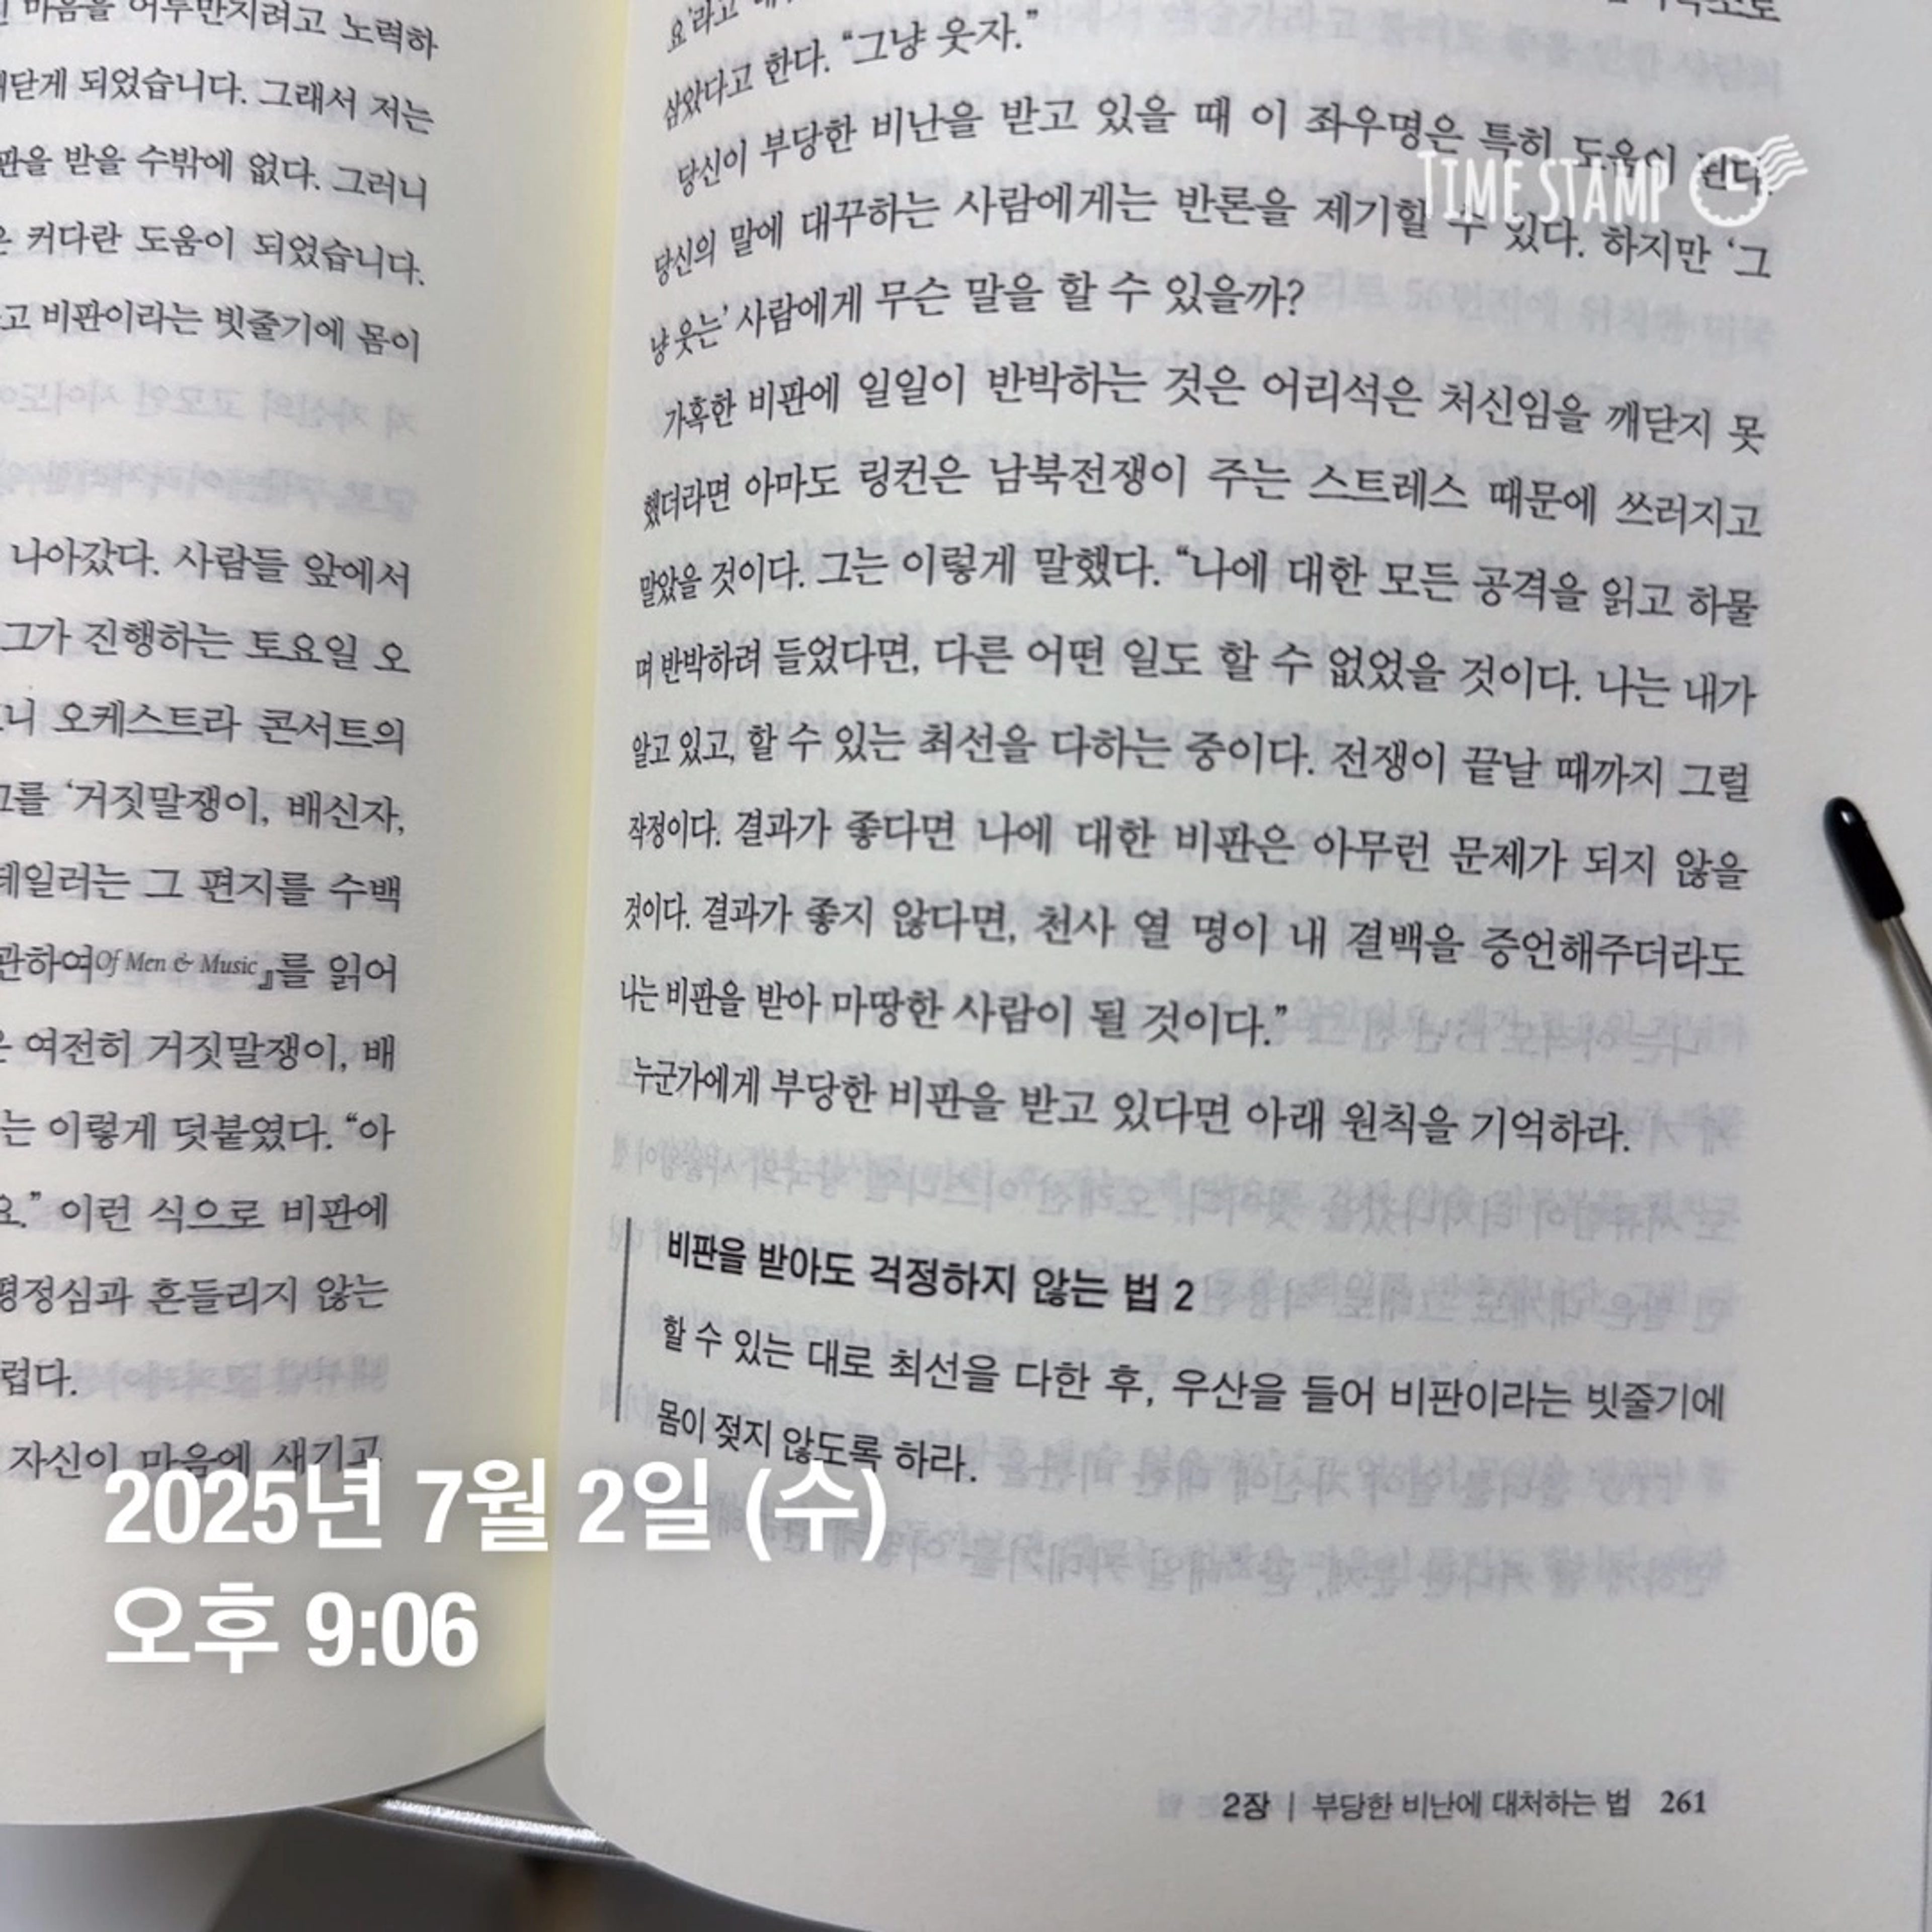 마음을 어루만지려고 노력하
깨닫게 되었습니다. 그래서 저는
판을 받을 수밖에 없다. 그러니
커다란 도움이 되었습니다.
고 비판이라는 빗줄기에 몸이
나아갔다. 사람들 앞에서
그가 진행하는 토요일 오
니 오케스트라 콘서트의
그를 ‘거짓말쟁이, 배신자,
테일러는 그 편지를 수백
관하여Of Men & Music』를 읽어
여전히 거짓말쟁이, 배
는 이렇게 덧붙였다. “아
요.” 이런 식으로 비판에
평정심과 흔들리지 않는
럽다.
자신이 마음에 새기고
요’라고
삼았다고 한다. “그냥 웃자.”
당신이 부당한 비난을 받고 있을 때 이 좌우명은 특히 도움이 된다.
당신의 말에 대꾸하는 사람에게는 반론을 제기할 수 있다. 하지만 ‘그
냥 웃는’ 사람에게 무슨 말을 할 수 있을까?
가혹한 비판에 일일이 반박하는 것은 어리석은 처신임을 깨닫지 못
했더라면 아마도 링컨은 남북전쟁이 주는 스트레스 때문에 쓰러지고
말았을 것이다. 그는 이렇게 말했다. “나에 대한 모든 공격을 읽고 하물
며 반박하려 들었다면, 다른 어떤 일도 할 수 없었을 것이다. 나는 내가
알고 있고, 할 수 있는 최선을 다하는 중이다. 전쟁이 끝날 때까지 그럴
작정이다. 결과가 좋다면 나에 대한 비판은 아무런 문제가 되지 않을
것이다. 결과가 좋지 않다면, 천사 열 명이 내 결백을 증언해주더라도
나는 비판을 받아 마땅한 사람이 될 것이다.”
누군가에게 부당한 비판을 받고 있다면 아래 원칙을 기억하라.
비판을 받아도 걱정하지 않는 법 2
할 수 있는 대로 최선을 다한 후, 우산을 들어 비판이라는 빗줄기에
몸이 젖지 않도록 하라.
2장 | 부당한 비난에 대처하는 법 261
TIME STAMP
2025년 7월 2일 (수)
오후 9:06